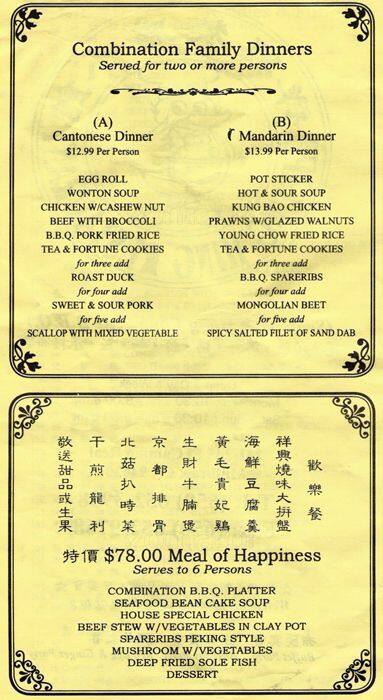 Combination Family Dinners
Served for two or more persons
(A)
Cantonese Dinner
$12.99 Per Person
EGG ROLL
WONTON SOUP
CHICKEN W/CASHEW NUT
BEEF WITH BROCCOLI
B.B.Q. PORK FRIED RICE
TEA & FORTUNE COOKIES
for three add
ROAST DUCK
for four add
SWEET & SOUR PORK
for five add
SCALLOP WITH MIXED VEGETABLE
(B)
Mandarin Dinner
$13.99 Per Person
POT STICKER
HOT & SOUR SOUP
KUNG BAO CHICKEN
PRAWNS W/GLAZED WALNUTS
YOUNG CHOW FRIED RICE
TEA & FORTUNE COOKIES
for three add
B.B.Q. SPARERIBS
for four add
MONGOLIAN BEET
for five add
SPICY SALTED FILET OF SAND DAB
歡樂餐
祥興燒味大拼盤
海鮮豆腐羹
黃毛貴妃鷄
生財牛腩煲
京都排骨
北菇扒時菜
干煎龍利
敬送甜品或生果
特價 $78.00 Meal of Happiness
Serves to 6 Persons
COMBINATION B.B.Q. PLATTER
SEAFOOD BEAN CAKE SOUP
HOUSE SPECIAL CHICKEN
BEEF STEW W/VEGETABLES IN CLAY POT
SPARERIBS PEKING STYLE
MUSHROOM W/VEGETABLES
DEEP FRIED SOLE FISH
DESSERT